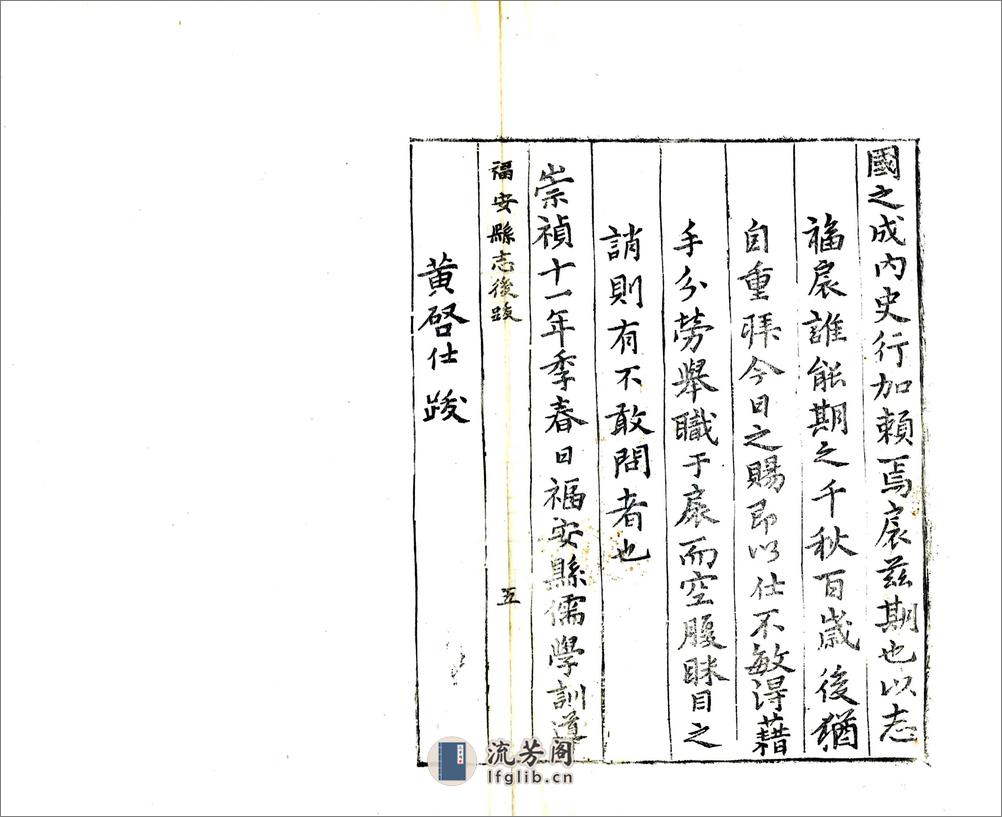 國之成内史行加賴焉扆兹期也以志
福扆誰能期之千秋百歲後猶
自重拜今日之賜即以仕不敏得藉
手分勞舉職于扆而空腹眯目之
誚則有不敢問者也
崇禎十一年季春日福安縣儒學訓導
福安縣志後跋 五
黃啓仕跋
流芳阁
lfglib.cn